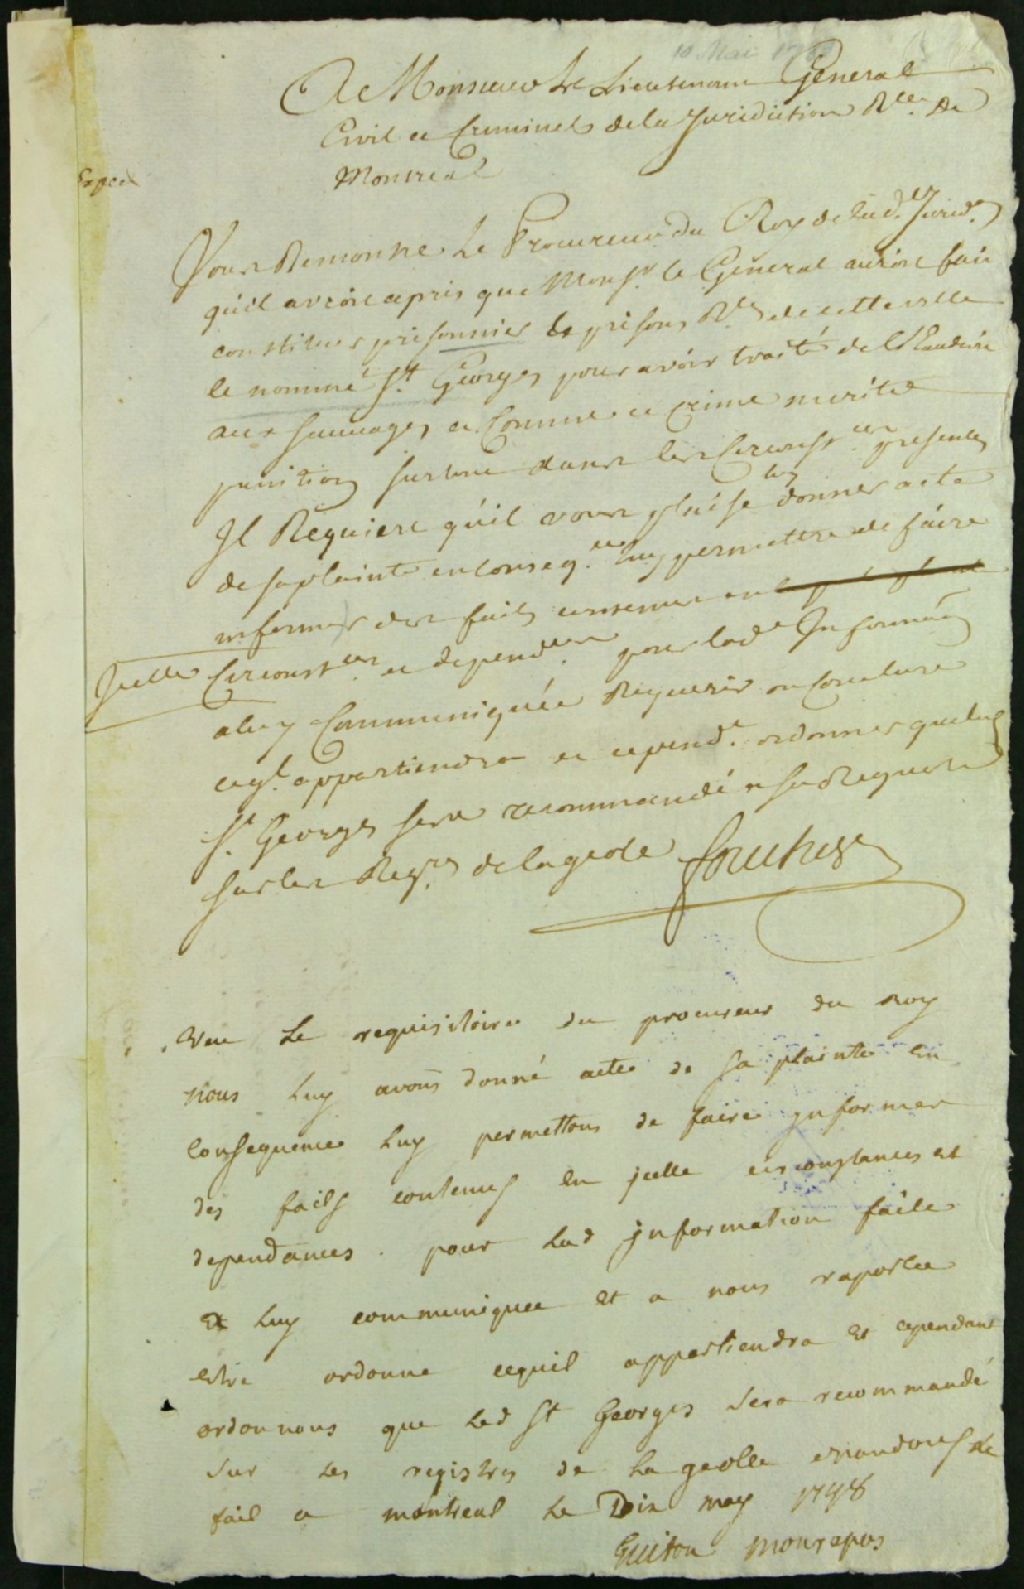 10 Mai 1748
A Monsieur Le Lieutenant General
Civil et Criminel de la Jurisdiction Rlle. De
Montreal
Exped
Vous Remontre Le Procureur du Roy de lad. Jurid.
quil auroit apris que Monsr. le General auroit fait
constituer prisonnier es prisons Rles de cette ville
le nommé St. Georges pour avoir traité de L'Eaudevie
aux sauvages et Comme ce Crime merite
punition surtout dans les Circonstces. presentes
Il Requiert qu'il vous plaise luy donner acte
de sa plainte en conseqce. luy permettre de faire
informer des faits contenus en
Icelle Circonstces. et dependces. pour lade Informaon
a luy Communiquée Requerir ou Conclure
ce ql. appartiendra et cependt. ordonner que led
St. Georges sera recommandé a sa Requete
sur les Regres de la geole Foucher
Veu Le requisitoire du procureur du Roy
nous Luy avons donné acte de sa plainte En
Consequence Luy permettons de faire Informer
des faits contenus En jcelle circonstances et
dependances. pour Lad jnformation faite
Et Luy communiquée Et a nous raportée
Estre ordonné cequil appartiendra Et cependant
ordonnons que Led St Georges sera recommandé
sur Les registres de La geolle Mandons &c
fait a montreal Le Dix may 1748
Guiton Monrepos